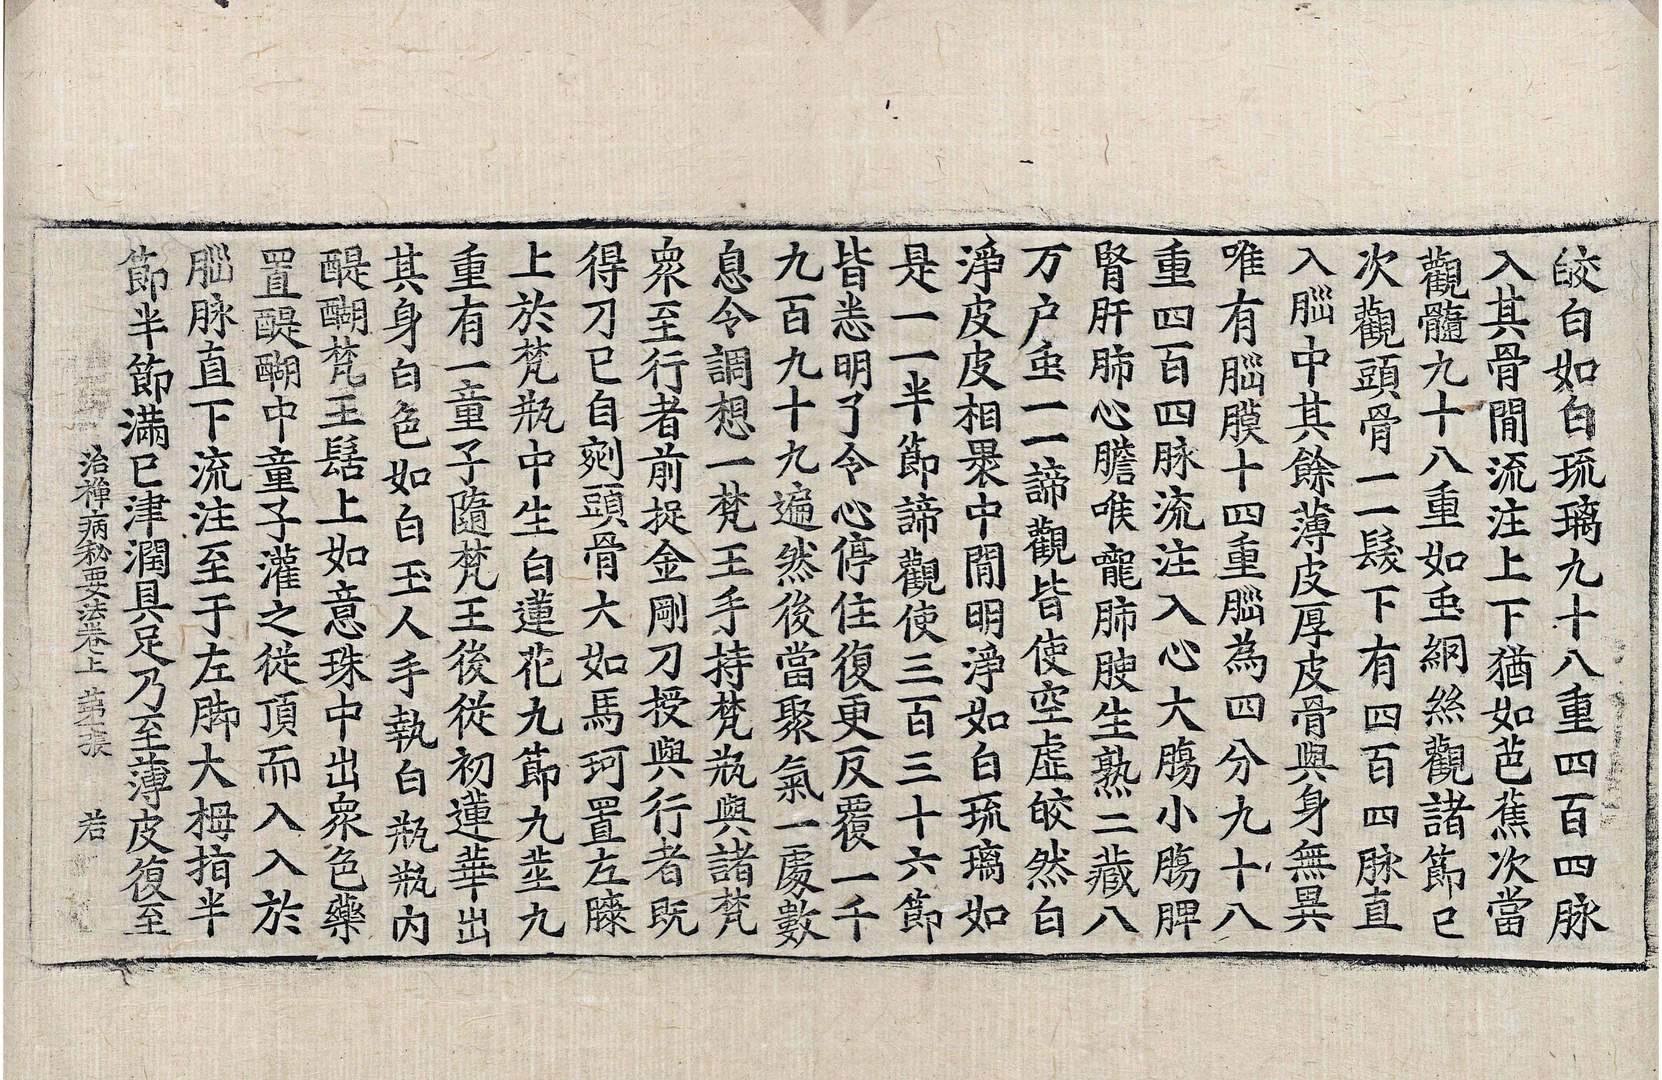 皎白如白琉璃九十八重四百四脉
入其骨閒流注上下猶如芭蕉次當
觀髓九十八重如䖝網絲觀諸節已
次觀頭骨一一鬘下有四百四脉直
入腦中其餘薄皮厚皮骨與身無異
唯有腦膜十四重腦為四分九十八
重四百四脉流注入心大膓小膓脾
腎肝肺心膽喉嚨肺腴生熟二藏八
万户䖝一一諦觀皆使空虛皎然白
淨皮皮相褁中閒明淨如白琉璃如
是一一半節諦觀使三百三十六節
皆悉明了令心停住復更反覆一千
九百九十九遍然後當聚氣一處數
息令調想一梵王手持梵瓶與諸梵
衆至行者前捉金剛刀授與行者既
得刀已自剜頭骨大如馬珂置左膝
上於梵瓶中生白蓮花九節九莖九
重有一童子隨梵王後從初蓮華出
其身白色如白玉人手執白瓶瓶内
醍醐梵王髻上如意珠中出衆色藥
置醍醐中童子灌之從頂而入入於
腦脉直下流注至于左脚大拇指半
節半節滿已津潤具足乃至薄皮復至
治禪病秘要法卷上 第 張 若